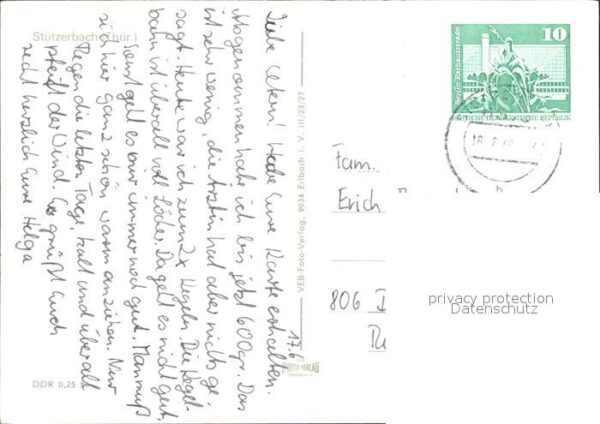 Stützerbach (Thür.)
17.6
Liebe Eltern! Habe Eure Karte erhalten.
Abgenommen habe ich bis jetzt 600 gr. Das
ist sehr wenig, die Ärztin hat aber nichts ge-
sagt. Heute war ich zum 2x Kegeln. Die Kegel-
bahn ist überall voll Löcher. Da geht es nicht gut,
sonst geht es mir immer noch gut. Man muß
sich hier ganz schön warm anziehen. Nur
Regen die letzten Tage, kalt und überall
pfeift der Wind. Es grüßt Euch
recht herzlich Eure Helga
DDR 0,25
VEB-Foto-Verlag, 9934 Erlbach i. V. III/23/27
10
Berlin, Rathausstraße
DEUTSCHE DEMOKRATISCHE REPUBLIK
Fam.
Erich
806 D
privacy protection
Datenschutz